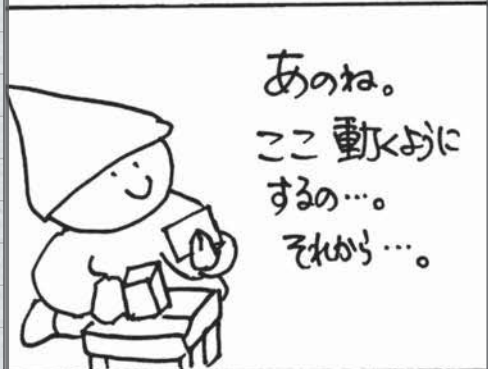 あのね。
ここ 動くように
するの…。
それから…。